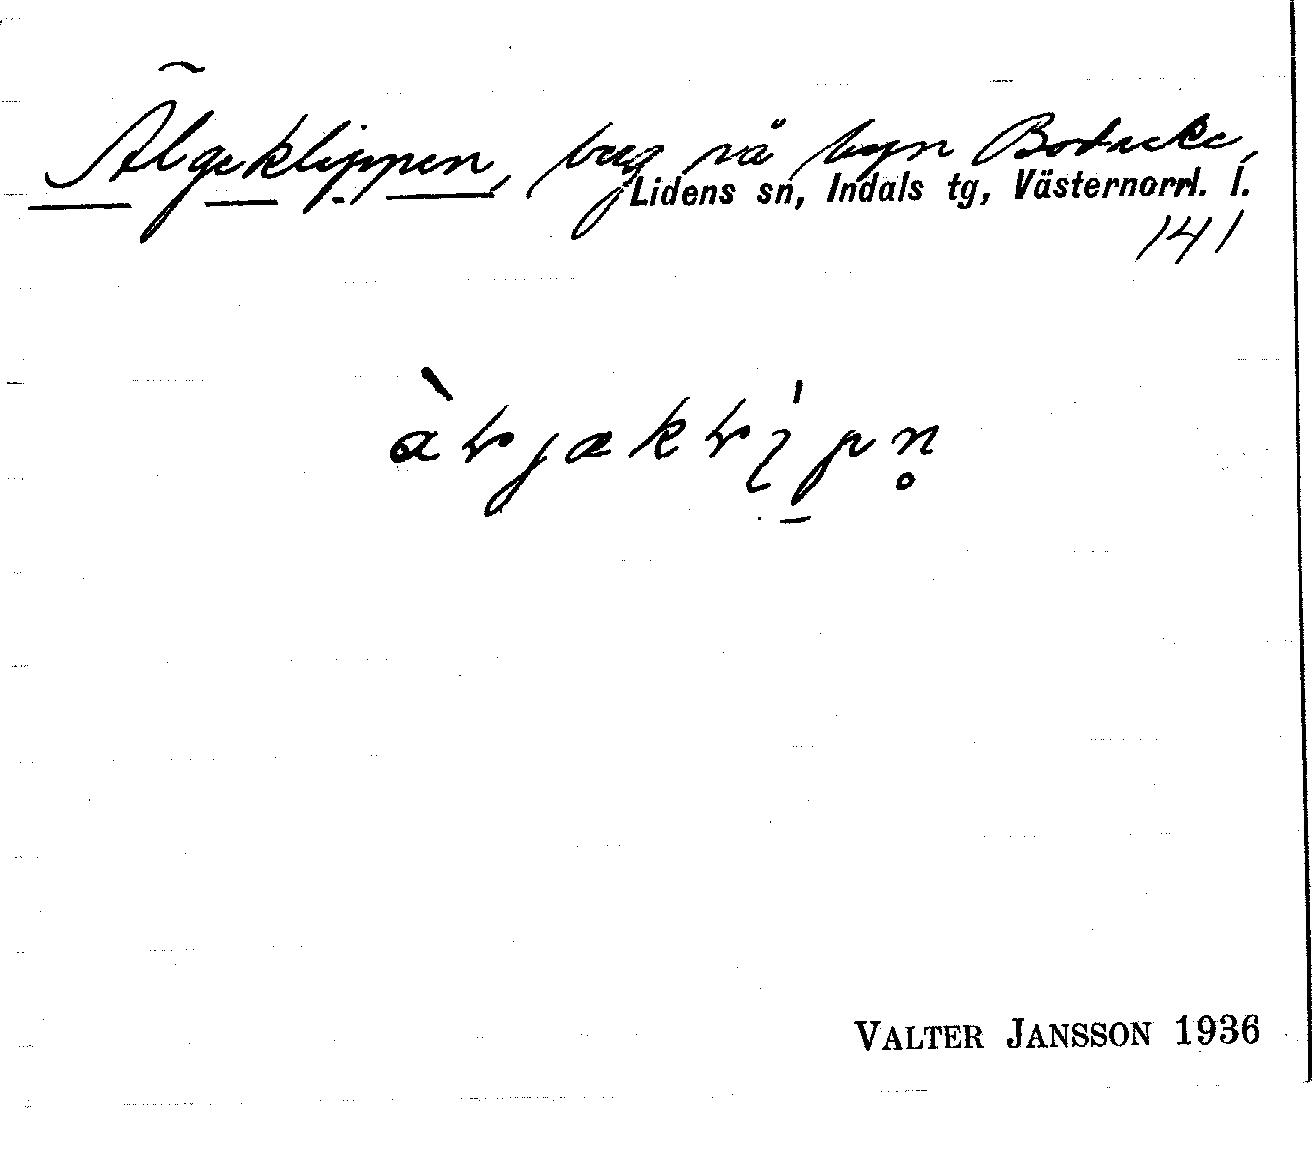 Älgeklippen, berg på byn Bodacke,
Lidens sn, Indals tg, Västernorrl. l.
141
VALTER JANSSON 1936